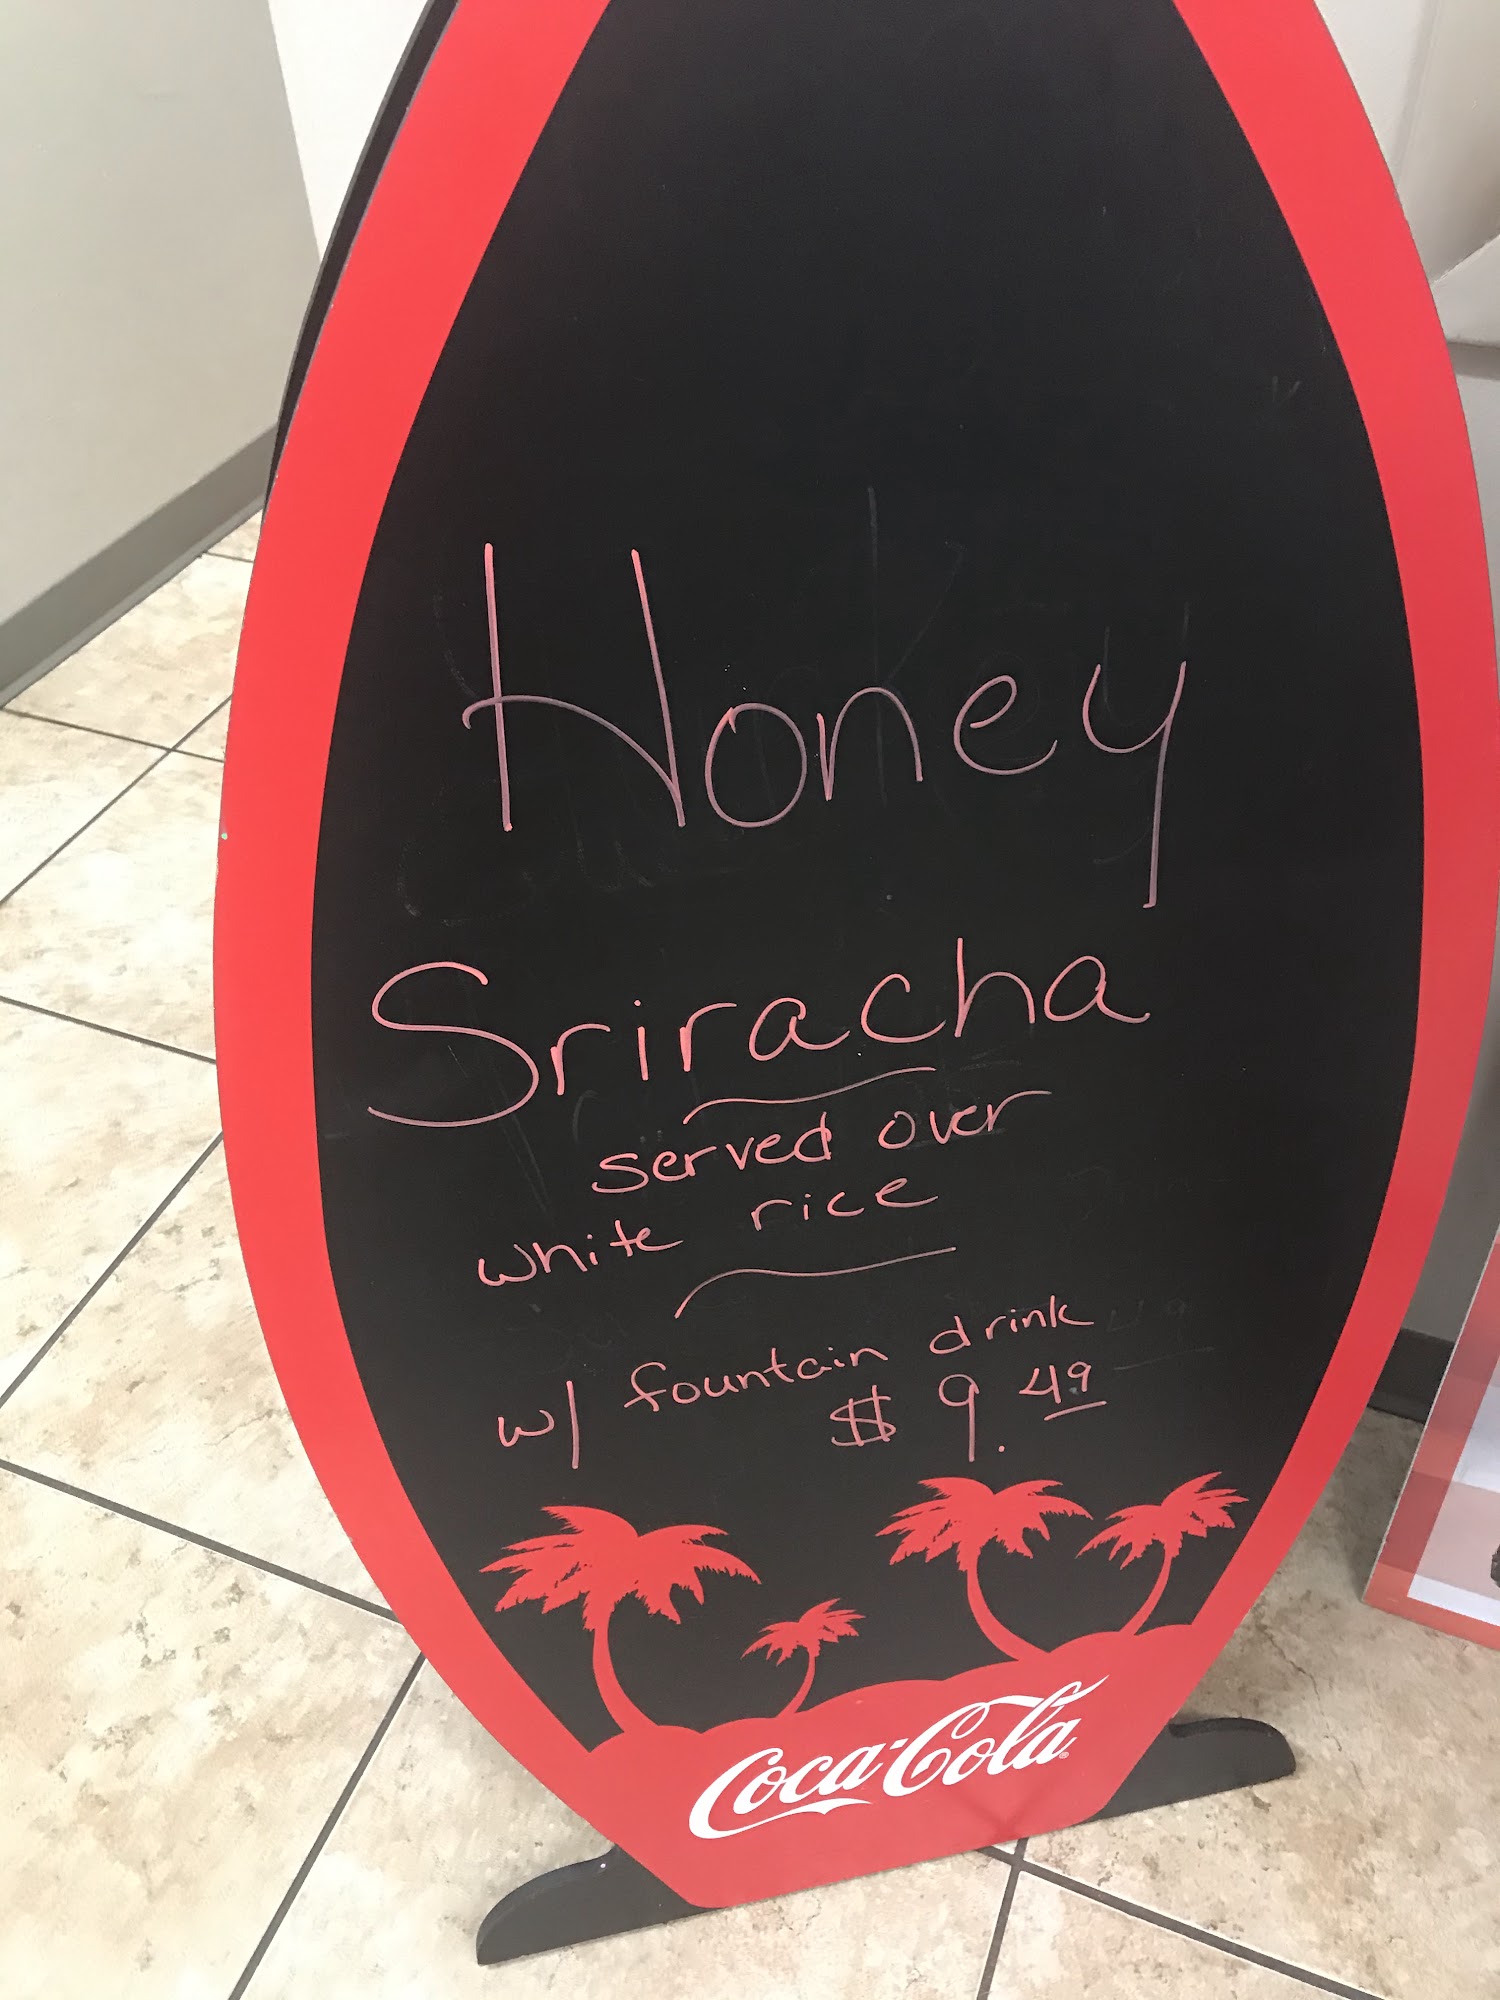 Honey
Sriracha
served over
white rice
w/ fountain drink
$ 9.49
Coca-Cola